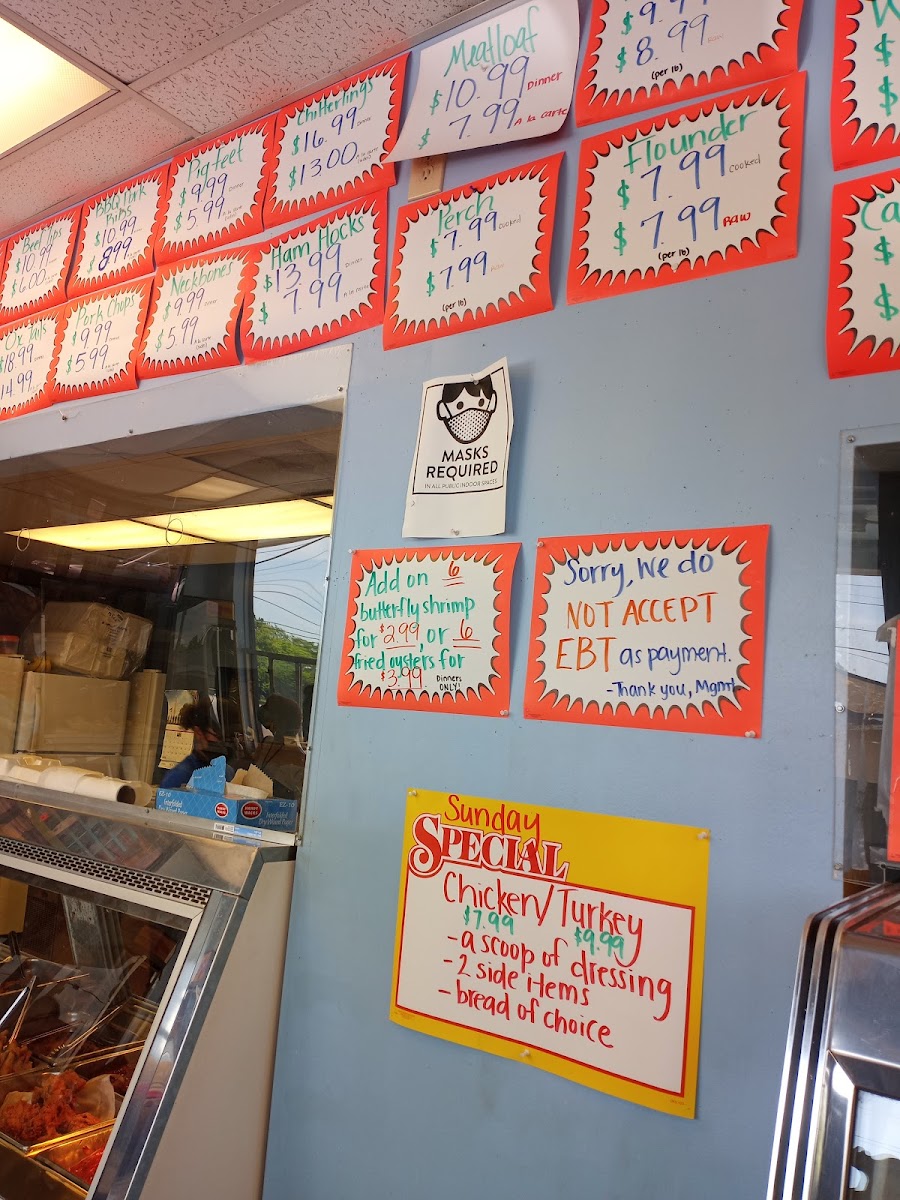 Meatloaf
$10.99 Dinner
$ 7.99 A la carte
$ 9.99
$ 8.99 Raw
(per lb)
Chitterlings
$16.99 Dinner
$13.00
Pigfeet
$9.99 Dinner
$5.99
BBQ Pork
Ribs
$10.99
$ 8.99
$10.99
$6.00
Flounder
$ 7.99 cooked
$ 7.99 RAW
(per lb)
Perch
$ 7.99 cooked
$ 7.99
(per lb)
Ham Hocks
$13.99 Dinner
$ 7.99
Neckbones
$9.99
$5.99
Pork Chops
$9.99
$5.99
$18.99
14.99
Ca
$
$
MASKS
REQUIRED
IN ALL PUBLIC INDOOR SPACES
Add on 6
butterfly shrimp
for $2.99, or 6
fried oysters for
$3.99 Dinners
ONLY!
Sorry, We do
NOT ACCEPT
EBT as payment.
-Thank you, Mgmt
Sunday
SPECIAL
Chicken/Turkey
$7.99 $9.99
- a scoop of dressing
- 2 side items
- bread of choice